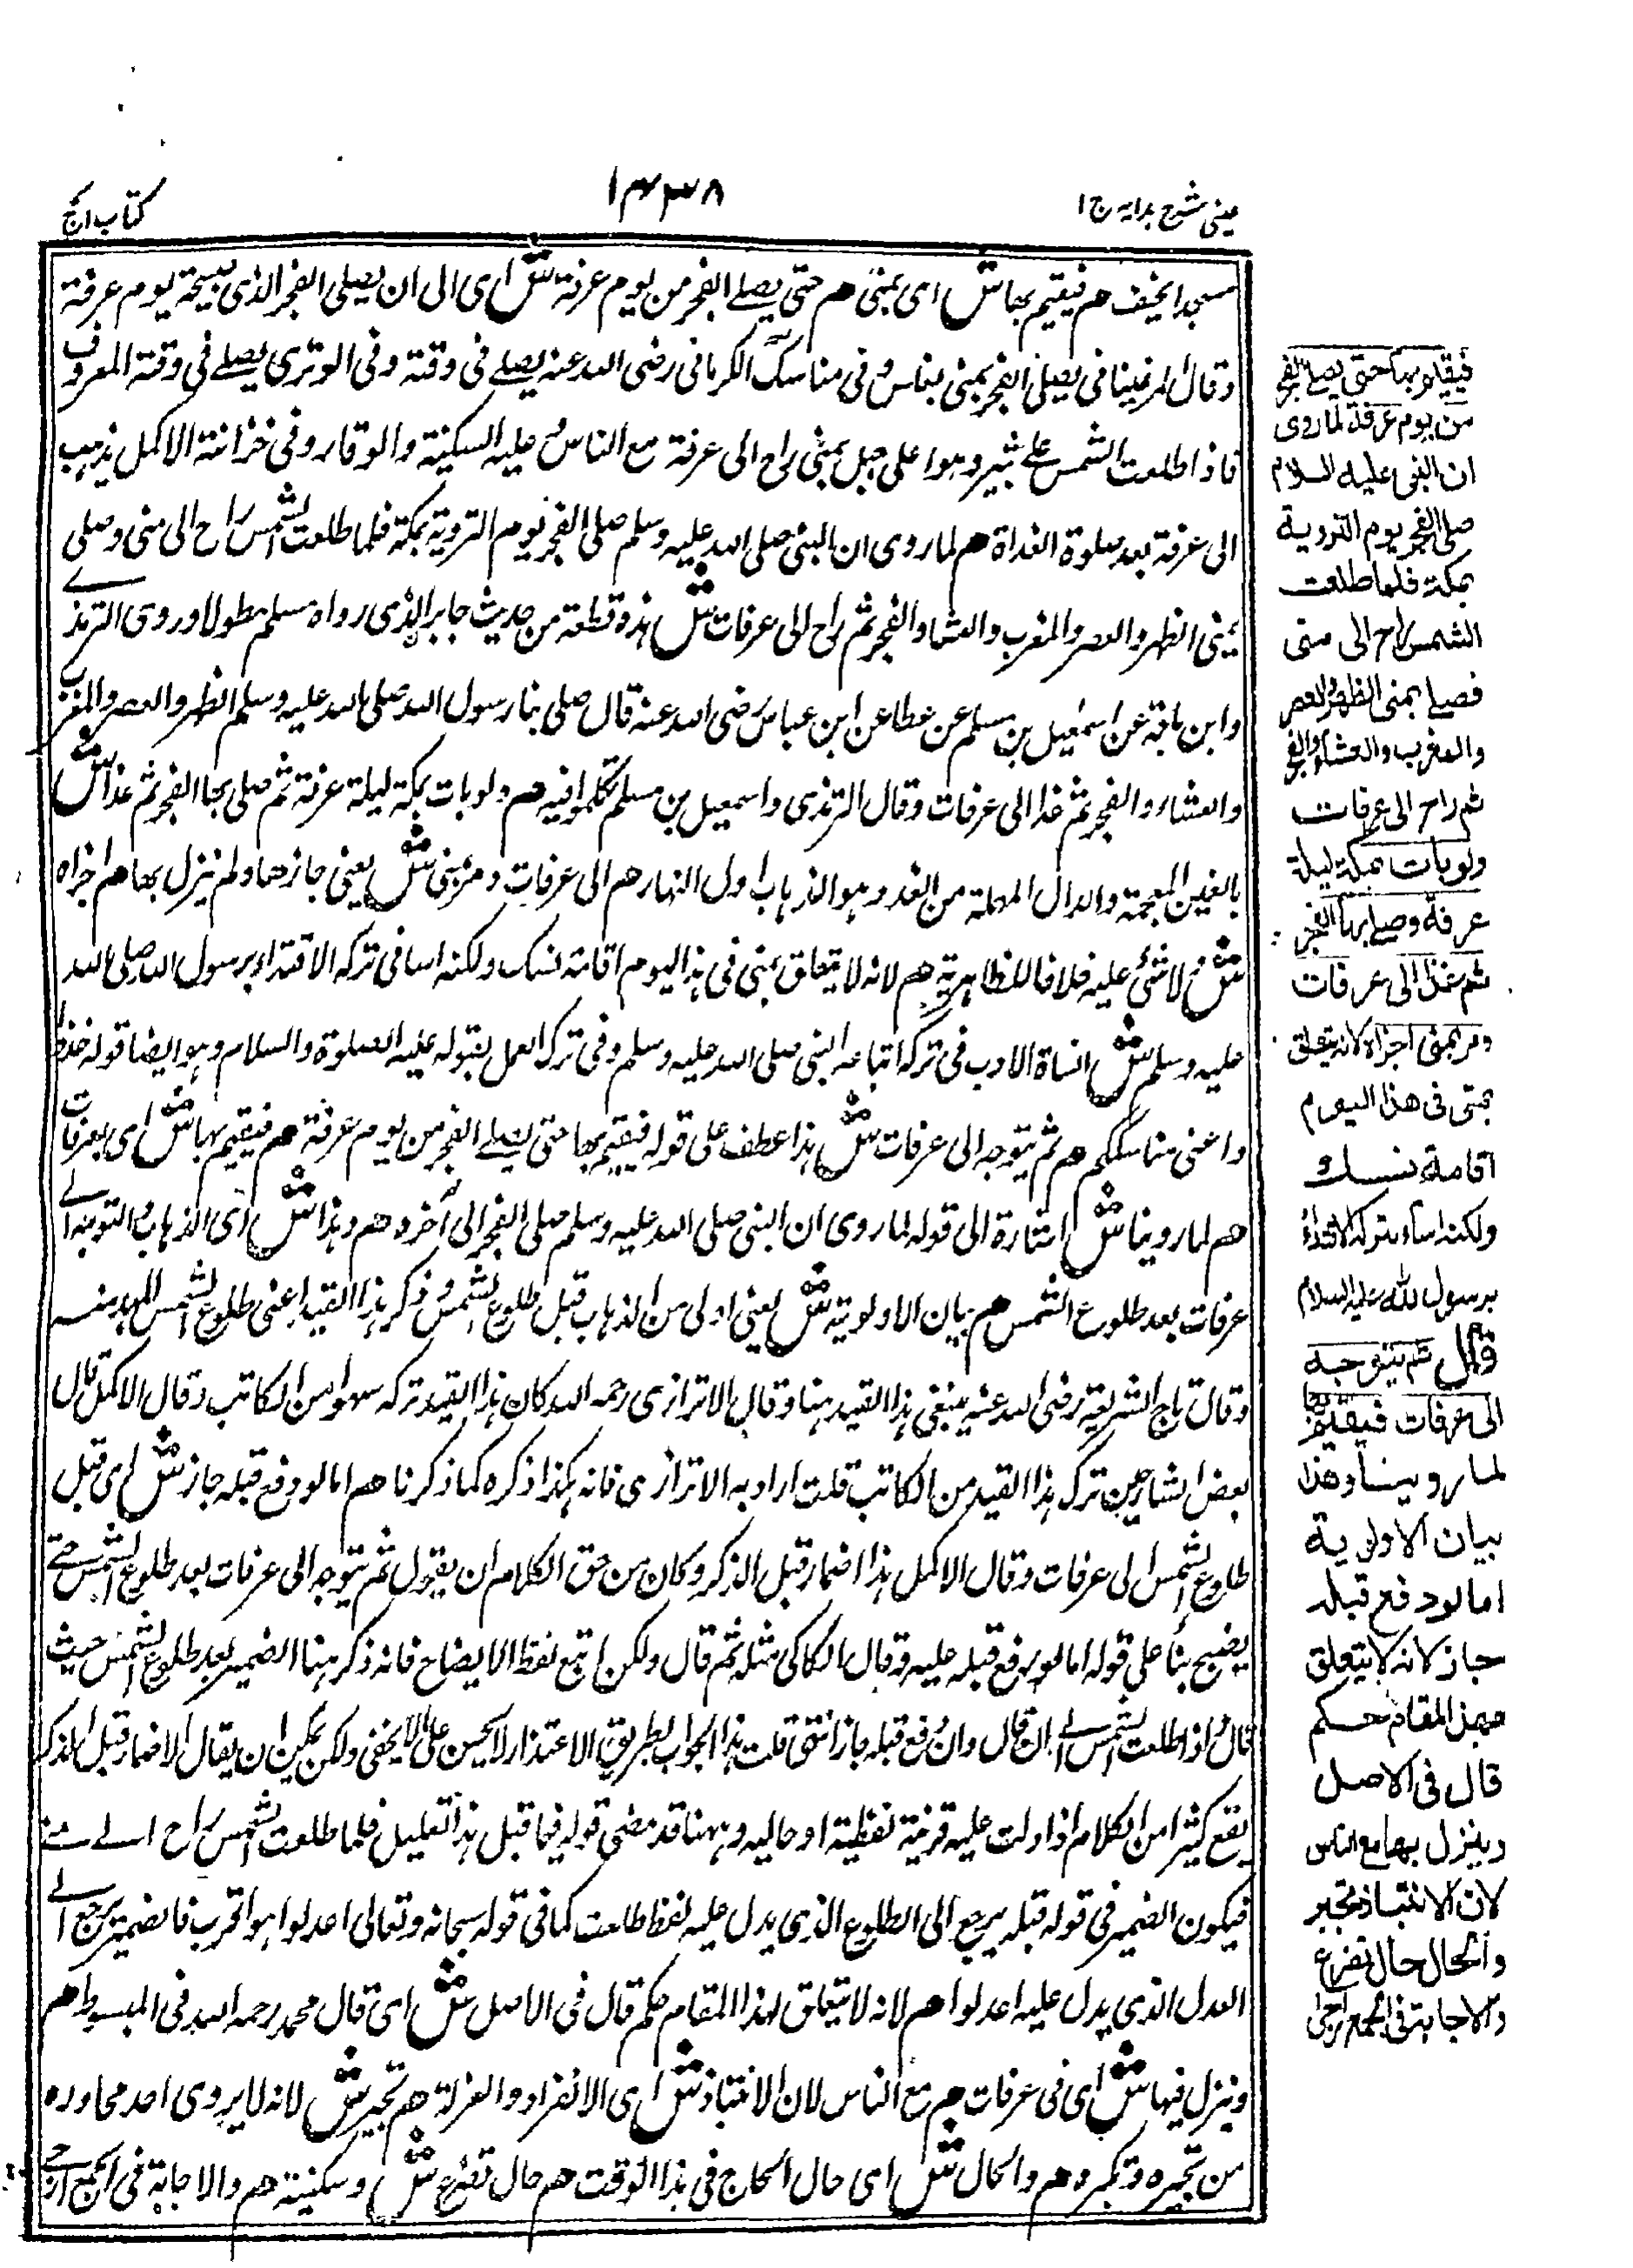 عینی شرح ہدایہ ج ۱
۱۴۳۸
کتاب الحج
مسجد الخیف هم فیقیم بها ش ای بمنی هم حتی یصلے الفجر من یوم عرفة ش ای الی ان یصلی الفجر الذی صبیحة یوم عرفة
وقال المرغینانی یصلی الفجر بمنی بغلس و فی مناسک الکرمانی رضی الله عنه یصلے فی وقته وفی الوتری یصلے فی وقته المعروف
فاذا طلعت الشمس علے ثبیر وهو اعلی جبل بمنی راح الی عرفة مع الناس و علیه السکینة والوقار وفی خزانة الاکمل یذهب
الی عرفة بعد صلوة الغداة هم لما روی ان النبی صلی الله علیه وسلم صلی الفجر یوم الترویة بمکة فلما طلعت الشمس راح الی منی وصلی
بمنی الظهر والعصر والمغرب والعشاء والفجر ثم راح الی عرفات ش هذه قطعة من حدیث جابر الذی رواه مسلم مطولا وروی الترمذے
وابن ماجة عن اسمعیل بن مسلم عن عطا عن ابن عباس رضی الله عنه قال صلی بنا رسول الله صلی الله علیه وسلم الظهر والعصر والمغرب
والعشاء والفجر ثم غدا الی عرفات وقال الترمذی واسمعیل بن مسلم تکلموا فیه هم ولو بات بمکة لیلة عرفة ثم صلی بها الفجر ثم غدا ش
بالغین المعجمة والدال المهملة من الغدو وهو الذهاب اول النهار هم الی عرفات ومر بمنی ش یعنی جازها ولم ینزل بها هم اجزاه
ش لا شئ علیه خلافا للظاهریة هم لانه لا یتعلق بمنی فی هذا الیوم اقامة نسک ولکنه اسا فی ترکه الاقتداء برسول الله صلی الله
علیه وسلم ش اساة الادب فی ترکه اتباعه النبی صلی الله علیه وسلم وفی ترک العمل بقوله علیه الصلوة والسلام وهو ایضا قوله خذوا
واعنی مناسککم هم ثم یتوجه الی عرفات ش هذا عطف علی قوله فیقیم بها حتی یصلے الفجر من یوم عرفة هم فیقیم بها ش ای بعرفات
هم لما روینا ش اشارة الی قوله لما روی ان النبی صلی الله علیه وسلم صلی الفجر الی آخره هم وهذا ش ای الذهاب و التوجه الے
عرفات بعد طلوع الشمس هم بیان الاولویة ش یعنی اولی من الذهاب قبل طلوع الشمس و ذکر هذا القید اعنی طلوع الشمس
وقال تاج الشریعة رضی الله عنه ینبغی هذا القید هنا وقال الاترازی رحمه الله کان هذا القید ترکه سهوا من الکاتب وقال الاکمل قال
بعض الشارحین ترک هذا القید من الکاتب قلت اراد به الاترازی فانه هکذا ذکره کما ذکرنا هم اما لو دفع قبله جاز ش ای قبل
طلوع الشمس الی عرفات وقال الاکمل هذا اضمار قبل الذکر وکان من حق الکلام ان یقول ثم یتوجه الی عرفات بعد طلوع الشمس حتے
یصح بناء علی قوله اما لو دفع قبله علیه وقال الکاکی مثله ثم قال ولکن اتبع لفظ الایضاح فانه ذکر هنا الضمیر بعد طلوع الشمس حیث
قال و اذا طلعت الشمس الے ان قال وان دفع قبله جاز انتهی قلت هذا الجواب بطریق الاعتذار لا یحسن علی ما لا یخفی ولکن یمکن ان یقال الاضمار قبل الذکر
یقع کثیرا من الکلام اذا دلت علیه قرینة لفظیة او حالیه وههنا قد مضی قوله فیما قبل هذا التعلیل فلما طلعت الشمس راح الے منے
فیکون الضمیر فی قوله قبله یرجع الی الطلوع الذی یدل علیه لفظ طلعت کما فی قوله سبحانه وتعالی اعدلوا هو اقرب فالضمیر یرجع الے
العدل الذی یدل علیه اعدلوا هم لانه لا یتعلق بهذا المقام حکم قال فی الاصل ش ای قال محمد رحمه الله فی المبسوط هم
وینزل فیها ش ای فی عرفات هم مع الناس لان الانتباذ ش ای الانفراد والعزلة هم تجبر ش لانه لا یروی احد محاوره
من تجبره وتکبره هم والحال ش ای حال الحاج فی هذا الوقت هم حال تضرع ش وسکینة هم والاجابة فی الجمع ارجے
فیقیم بها حتی یصلی الفجر
من یوم عرفة لما روی
ان النبی علیه السلام
صلی الفجر یوم الترویة
بمکة فلما طلعت
الشمس راح الی منی
فصلی بمنی الظهر والعصر
والمغرب والعشاء والفجر
ثم راح الی عرفات
ولو بات بمکة لیلة
عرفة وصلی بها الفجر
ثم غدا الی عرفات
ومر بمنی اجزاه لانه لا یتعلق
بمنی فی هذا الیوم
اقامة نسك و
ولکنه اساء بترکه الاقتداء
برسول الله علیه السلام
قال ثم یتوجه
الی عرفات فیقیم بها
لما روینا وهذا
بیان الاولویة
اما لو دفع قبله
جاز لانه لا یتعلق
بهذا المقام حکم
قال فی الاصل
وینزل بها مع الناس
لان الانتباذ تجبر
والحال حال تضرع
والاجابة فی الجمع ارجی